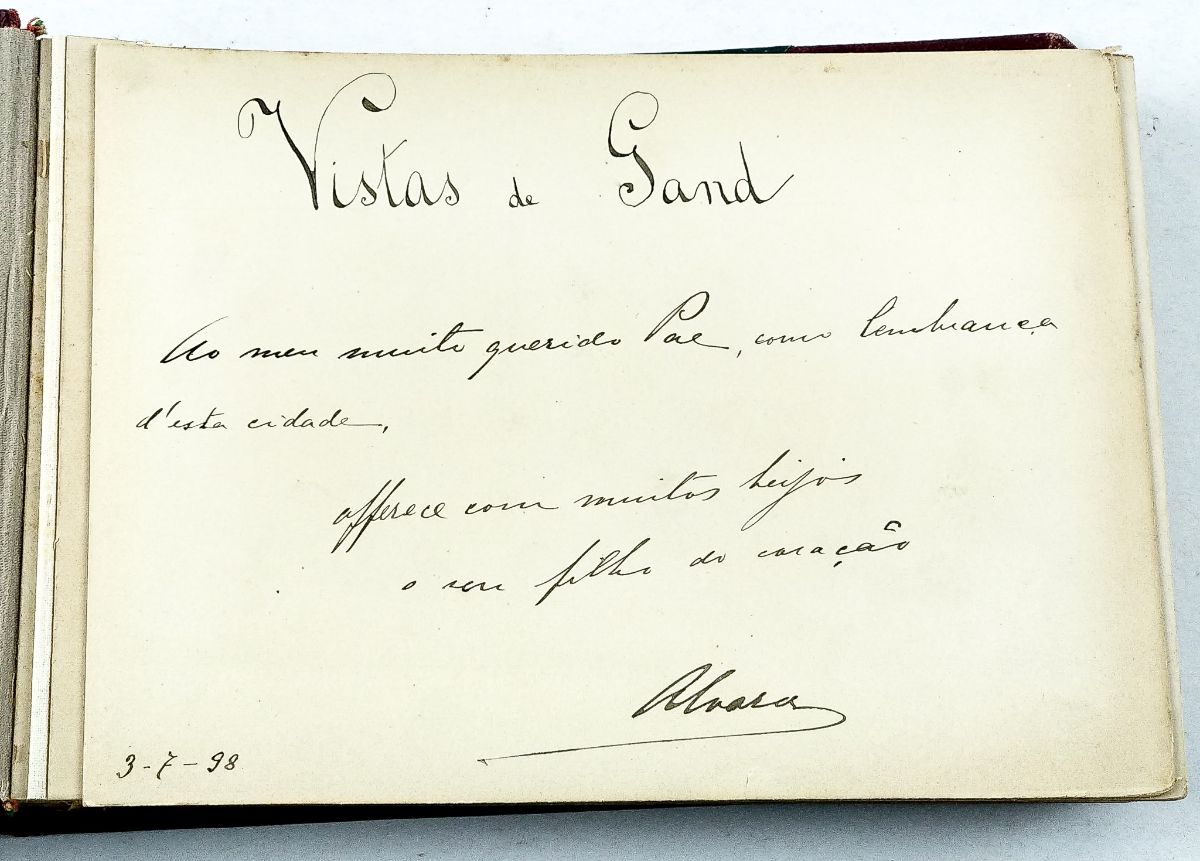 Vistas de Gand
Ao meu muito querido Pae, como lembrança
d'esta cidade,
offerece com muitos beijos
o seu filho do coração
Alvaro
3-7-98